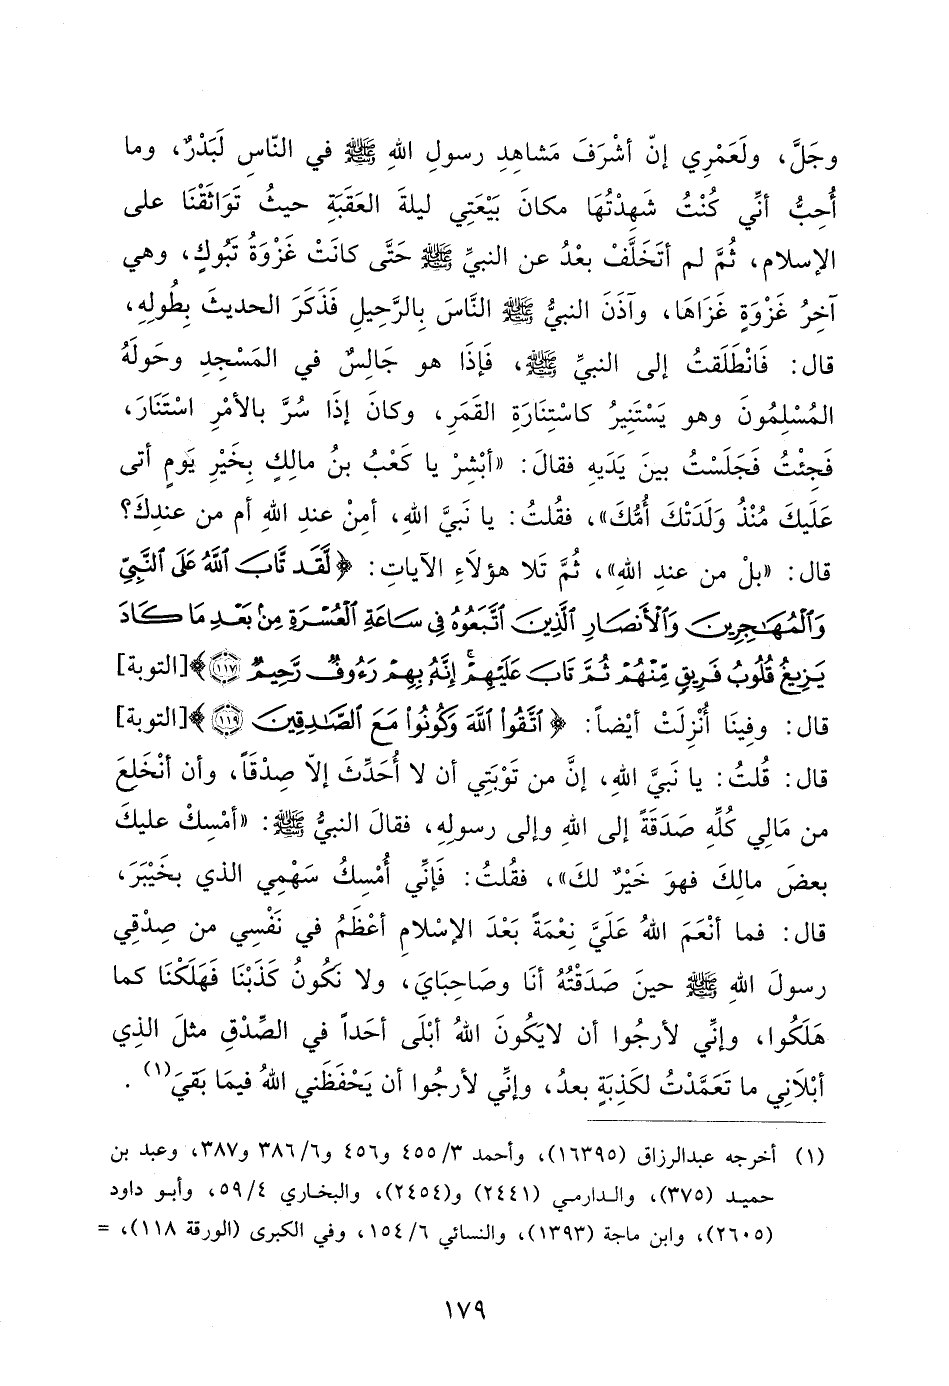 وجَلَّ، ولَعَمْرِي إنّ أشْرَفَ مَشاهِدِ رسولِ اللهِ ﷺ في النّاسِ لَبَدْرٌ، وما
أُحِبُّ أنِّي كُنْتُ شَهِدْتُهَا مكانَ بَيْعَتِي ليلةَ العَقَبَةِ حيثُ تَوَاثَقْنَا على
الإسلام، ثُمَّ لم أتَخَلَّفْ بعْدُ عن النبيِّ ﷺ حَتَّى كانَتْ غَزْوَةُ تَبُوكٍ، وهي
آخِرُ غَزْوَةٍ غَزَاهَا، وآذَنَ النبيُّ ﷺ النَّاسَ بِالرَّحِيلِ فَذَكَرَ الحديثَ بِطُولِهِ،
قال: فَانْطَلَقتُ إلى النبيِّ ﷺ، فَإذَا هو جَالِسٌ في المَسْجِدِ وحَولَهُ
المُسْلِمُونَ وهو يَسْتَنِيرُ كاسْتِنَارَةِ القَمَرِ، وكانَ إذَا سُرَّ بالأمْرِ اسْتَنَارَ،
فَجِئْتُ فَجَلَسْتُ بينَ يَدَيهِ فقالَ: «أبْشِرْ يا كَعْبُ بنُ مالِكٍ بِخَيْرِ يَومٍ أتى
عَلَيكَ مُنْذُ وَلَدَتْكَ أُمُّكَ»، فقُلتُ: يا نَبيَّ اللهِ، أمِنْ عندِ اللهِ أم من عندِكَ؟
قال: «بلْ من عندِ اللهِ»، ثُمَّ تَلا هؤلاَءِ الآياتِ: ﴿لَّقَد تَّابَ ٱللَّهُ عَلَى ٱلنَّبِيِّ
وَٱلْمُهَٰجِرِينَ وَٱلْأَنصَارِ ٱلَّذِينَ ٱتَّبَعُوهُ فِي سَاعَةِ ٱلْعُسْرَةِ مِنۢ بَعْدِ مَا كَادَ
يَزِيغُ قُلُوبُ فَرِيقٍ مِّنْهُمْ ثُمَّ تَابَ عَلَيْهِمْ ۚ إِنَّهُ بِهِمْ رَءُوفٌ رَّحِيمٌ ١١٧﴾ [التوبة]
قال: وفِينَا أُنْزِلَتْ أيْضاً: ﴿ٱتَّقُوا۟ ٱللَّهَ وَكُونُوا۟ مَعَ ٱلصَّٰدِقِينَ ١١٩﴾ [التوبة]
قال: قُلتُ: يا نَبيَّ اللهِ، إنَّ من تَوْبَتِي أن لا أُحَدِّثَ إلاّ صِدْقَاً، وأن أنْخَلِعَ
من مَالِي كُلِّهِ صَدَقَةً إلى اللهِ وإلى رسولِهِ، فقالَ النبيُّ ﷺ: «أمْسِكْ عليكَ
بعضَ مالِكَ فهوَ خَيْرٌ لكَ»، فقُلتُ: فَإنِّي أُمْسِكُ سَهْمِي الذي بخَيْبَرَ،
قال: فما أنْعَمَ اللهُ عَلَيَّ نِعْمَةً بَعْدَ الإسْلامِ أعْظَمُ في نَفْسِي من صِدْقِي
رسولَ اللهِ ﷺ حينَ صَدَقْتُهُ أنَا وصَاحِبَايَ، ولا نَكُونُ كَذَبْنَا فَهَلَكْنَا كما
هَلَكُوا، وإنِّي لأرجُوا أن لايَكُونَ اللهُ أبْلَى أحَداً في الصِّدْقِ مثلَ الذِي
أبْلاَنِي ما تَعَمَّدْتُ لكَذِبَةٍ بعدُ، وإنِّي لأرجُوا أن يَحْفَظَني اللهُ فيمَا بَقيَ(١).
(١) أخرجه عبدالرزاق (١٦٣٩٥)، وأحمد ٣/ ٤٥٥ و٤٥٦ و٦/ ٣٨٦ و٣٨٧، وعبد بن
حميد (٣٧٥)، والدارمي (٢٤٤١) و(٢٤٥٤)، والبخاري ٤/ ٥٩، وأبو داود
(٢٦٠٥)، وابن ماجة (١٣٩٣)، والنسائي ٦/ ١٥٤، وفي الكبرى (الورقة ١١٨)، =
١٧٩